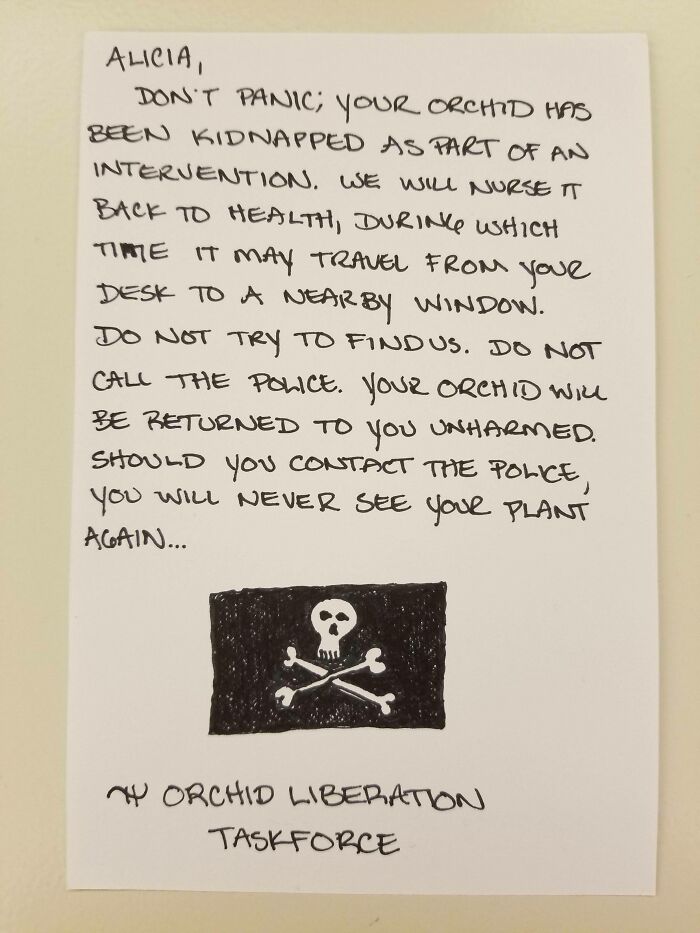 ALICIA,
DON'T PANIC; YOUR ORCHID HAS
BEEN KIDNAPPED AS PART OF AN
INTERVENTION. WE WILL NURSE IT
BACK TO HEALTH, DURING WHICH
TIME IT MAY TRAVEL FROM YOUR
DESK TO A NEARBY WINDOW.
DO NOT TRY TO FIND US. DO NOT
CALL THE POLICE. YOUR ORCHID WILL
BE RETURNED TO YOU UNHARMED.
SHOULD YOU CONTACT THE POLICE,
YOU WILL NEVER SEE YOUR PLANT
AGAIN...
ORCHID LIBERATION
TASKFORCE